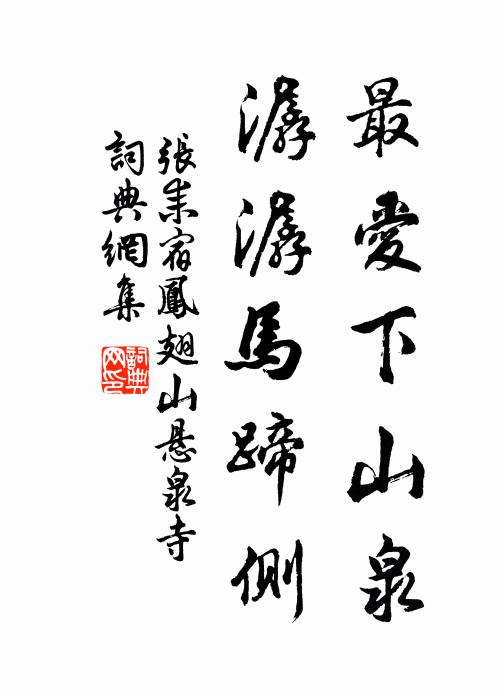 最愛下山泉
潺潺馬蹄側
張耒宿鳳翅山悬泉寺
詞典網集
詞典网印